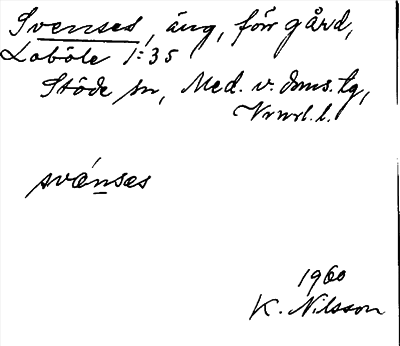 Svenses, äng, förr gård,
Loböle 1:35
Stöde sn, Med. v. dms. tg,
Vrnrl. l.
svénsas
1960
K. Nilsson